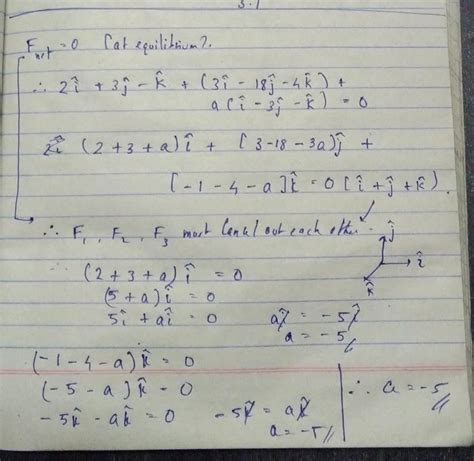 3.1
F_net = 0 (at equilibrium).
∴ 2î + 3ĵ - k̂ + (3î - 18ĵ - 4k̂) +
a(î - 3ĵ - k̂) = 0
(2 + 3 + a)î + [3 - 18 - 3a)ĵ +
[-1 - 4 - a]k̂ = 0[î + ĵ + k̂)
∴ F₁, F₂, F₃ must cancel out each other.
ĵ
î
k̂
(2 + 3 + a)î = 0
(5 + a)î = 0
5î + aî = 0
aî = -5î
a = -5
(-1 - 4 - a)k̂ = 0
(-5 - a)k̂ = 0
-5k̂ - ak̂ = 0
-5k̂ = ak̂
a = -5
∴ a = -5